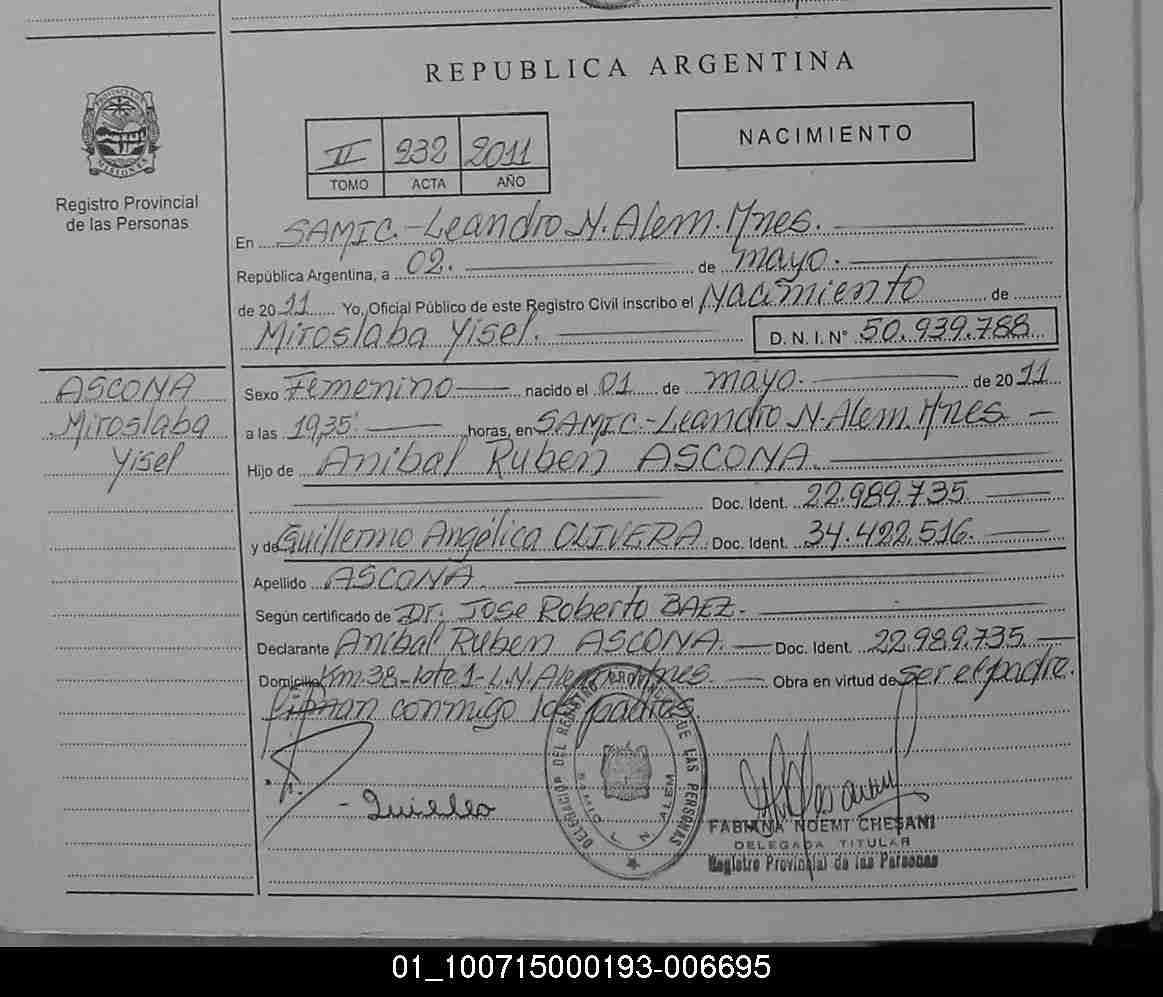 REPUBLICA ARGENTINA
PROVINCIA DE
MISIONES
Registro Provincial
de las Personas
II 232 2011
TOMO ACTA AÑO
NACIMIENTO
En SAMIC.-Leandro N. Alem. Mnes.
República Argentina, a 02. de mayo.
de 2011 Yo, Oficial Público de este Registro Civil inscribo el Nacimiento de
Miroslaba Yisel. D. N. I. N° 50.939.788
ASCONA
Miroslaba
Yisel
Sexo Femenino nacido el 01 de mayo. de 2011
a las 19,35' horas, en SAMIC.-Leandro N. Alem. Mnes.
Hijo de Anibal Ruben ASCONA.
Doc. Ident. 22.989.735
y de Guillermo Angélica OLIVERA. Doc. Ident. 34.422.516.
Apellido ASCONA.
Según certificado de Dr. Jose Roberto BAEZ.
Declarante Anibal Ruben ASCONA. Doc. Ident. 22.989.735
Domicilio Km 38-lote 1-L.N. Alem. Mnes. Obra en virtud de ser el padre.
Firman conmigo los padres.
DELEGACION DEL REGISTRO PROVINCIAL DE LAS PERSONAS
SAMIC L N ALEM
FABIANA NOEMI CHESANI
DELEGADA TITULAR
Registro Provincial de las Personas
01_100715000193-006695